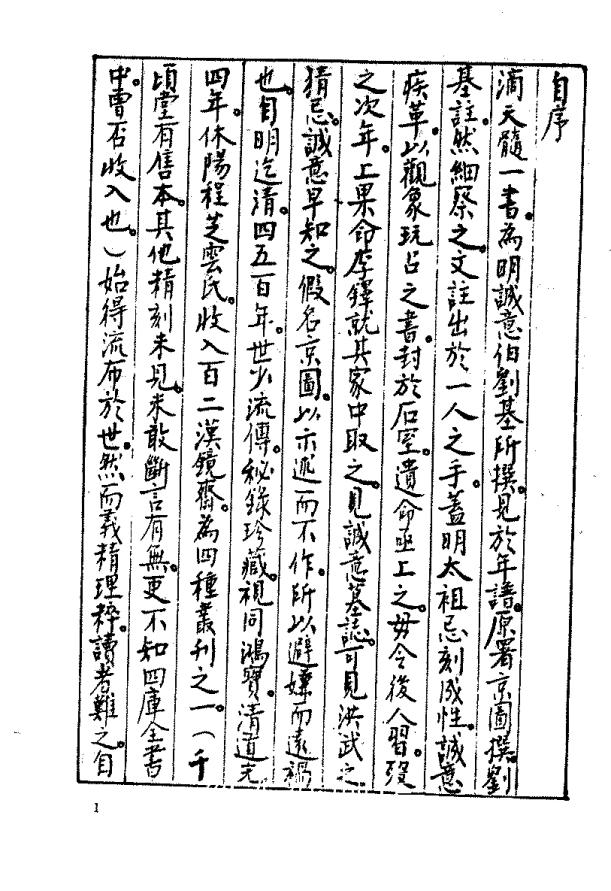 自序
滴天髓一書。為明誠意伯劉基所撰。見於年譜。原署京圖撰。劉
基註。然細察之。文註出於一人之手。蓋明太祖忌刻成性。誠意
疾革。以觀象玩占之書。封於石室。遺命亟上之。毋令後人習。歿
之次年。上果命李鐸就其家中取之。見誠意墓誌。可見洪武之
猜忌。誠意早知之。假名京圖。以示述而不作。所以避嫌而遠禍
也。自明迄清。四五百年。世少流傳。秘錄珍藏。視同鴻寶。清道光
四年。休陽程芝雲氏。收入百二漢鏡齋。為四種叢刊之一。（千
頃堂有售本。其他精刻未見。未敢斷言有無。更不知四庫全書
中曾否收入也。）始得流布於世。然而義精理粹。讀者難之。自
1